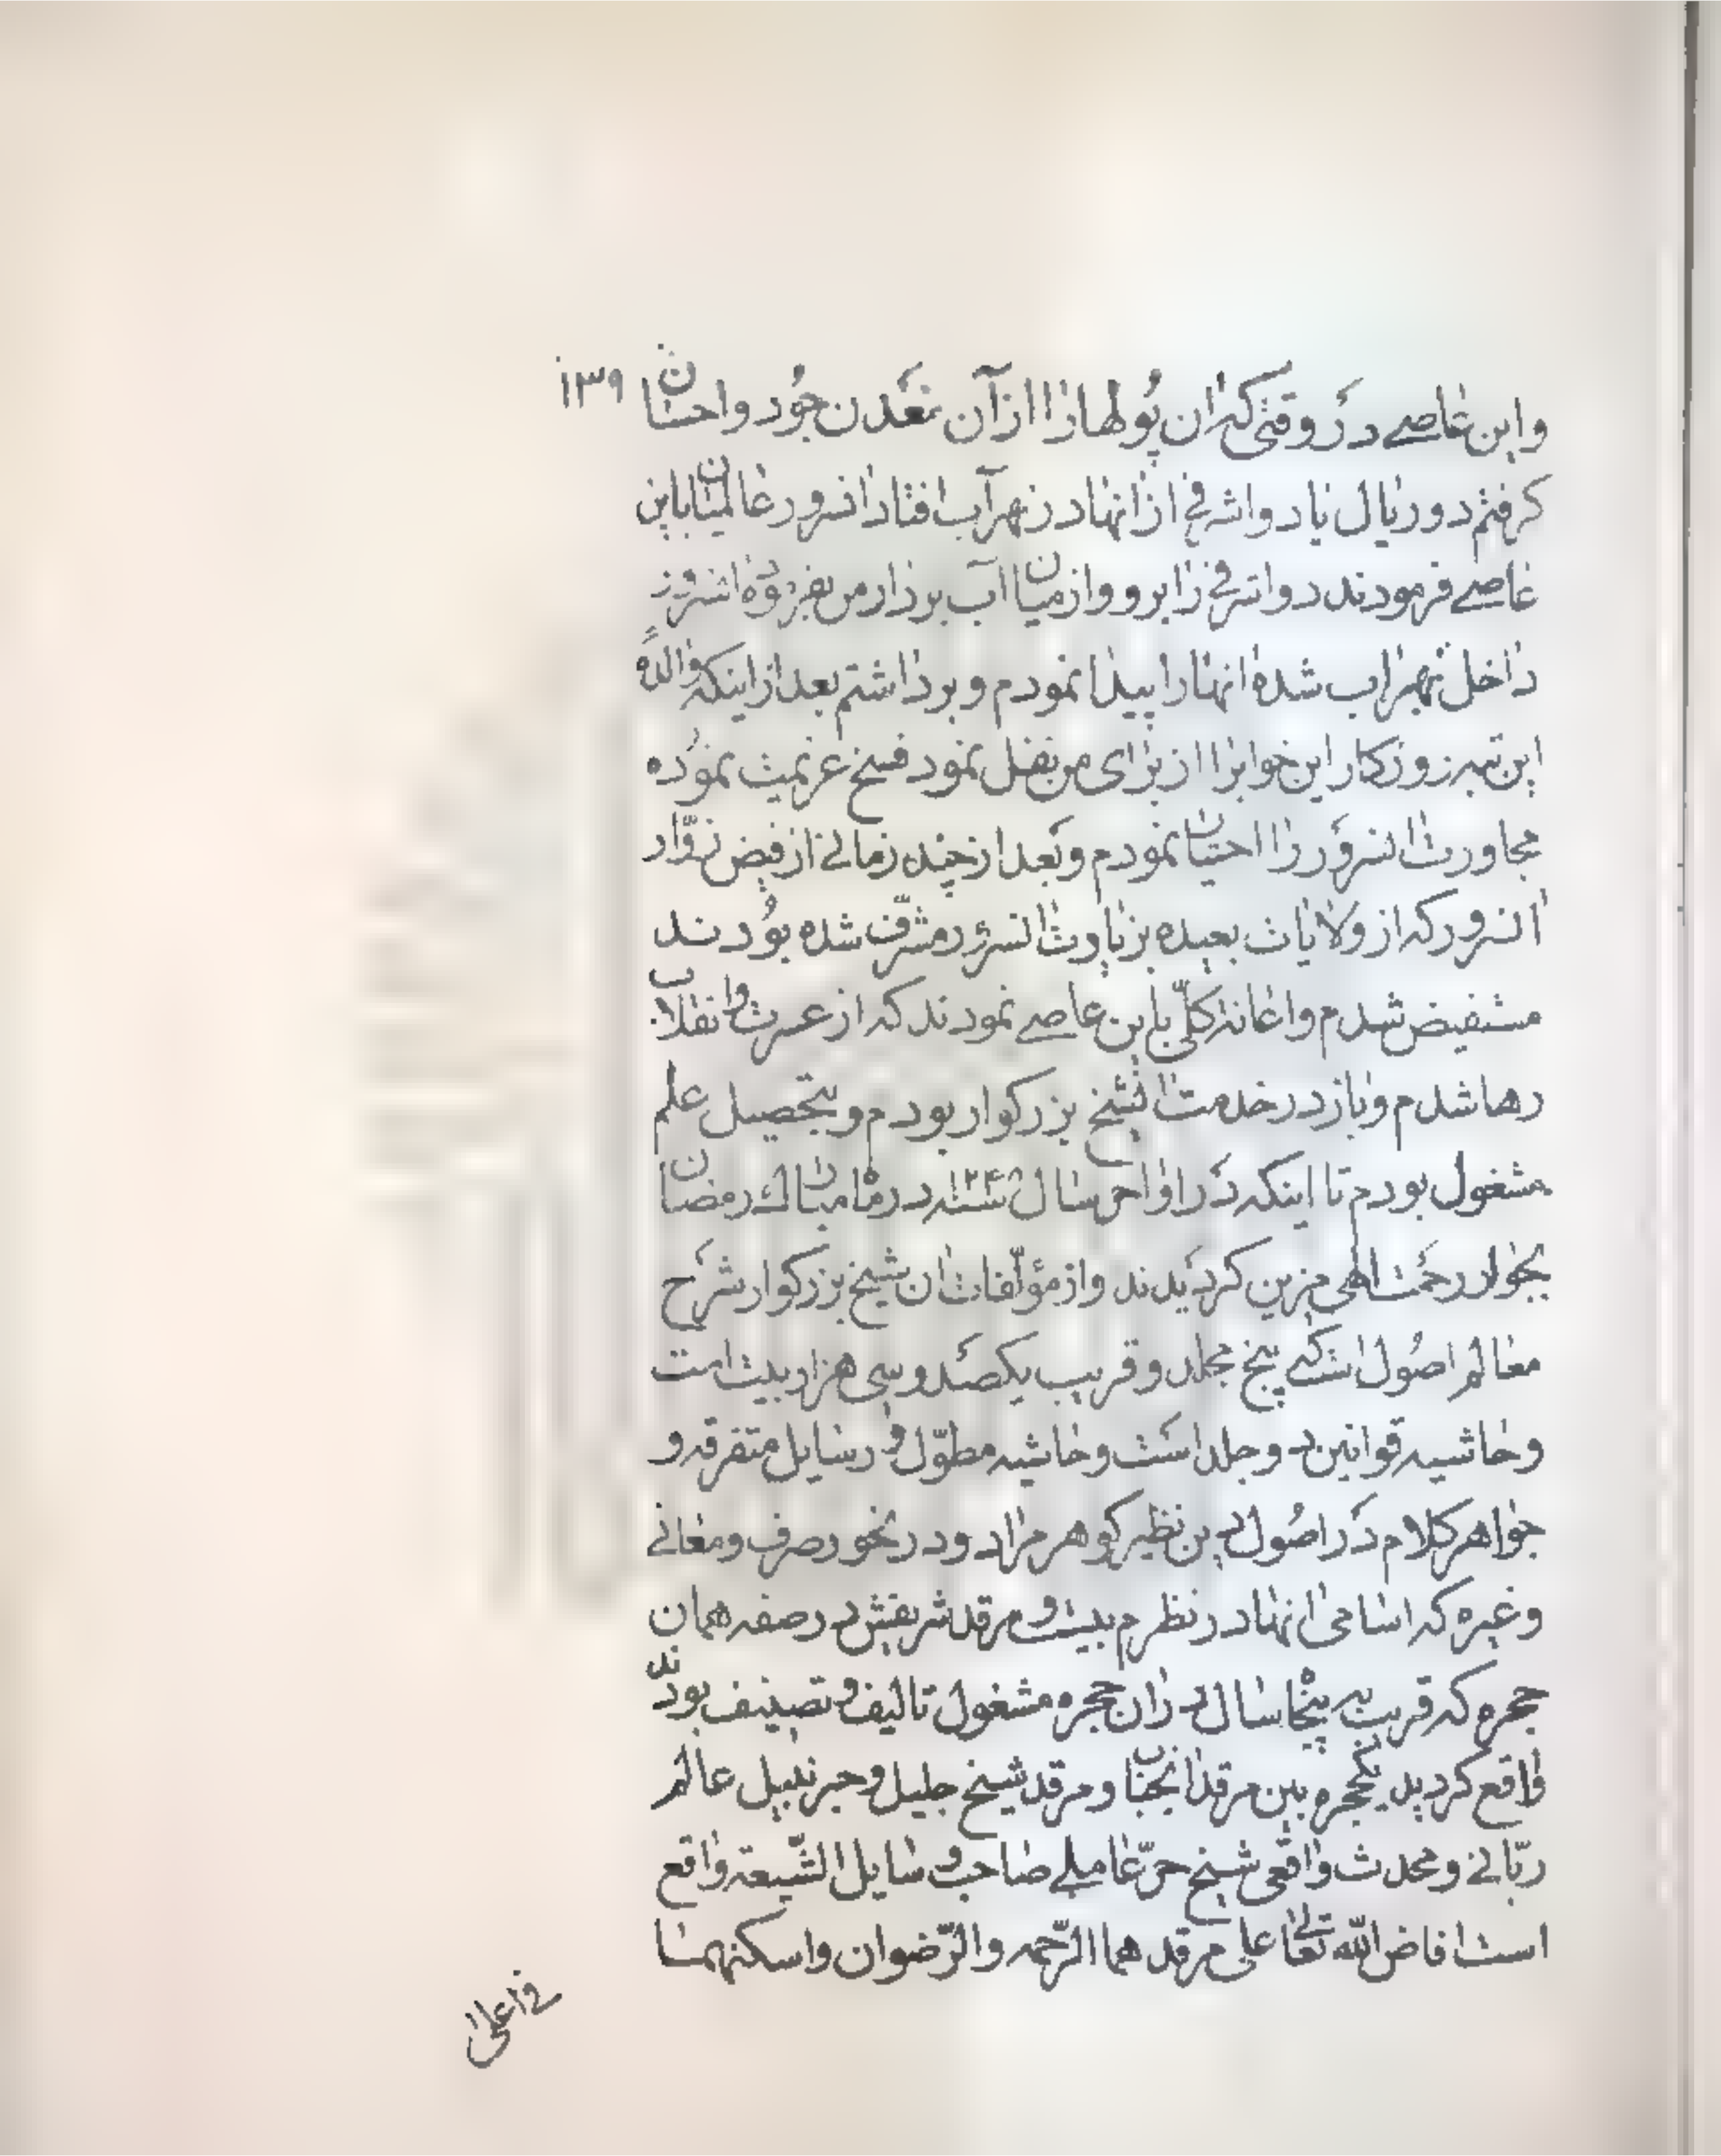 ۱۳۹
و این عاصی در وقتی که ان پولها را از آن معدن جود و احسان
کرفتم دو ریال یا دو اشرفی از انها در نهر آب افتاد انسرور عالمیان باین
عاصی فرمودند دو اشرفی را برو و از میان آب بردار من بفرموده انسرور
داخل نهر اب شده انها را پیدا نمودم و برداشتم بعد از اینکه والده
این تیره روزکار این خوابرا از برای من نقل نمود فسخ عزیمت نموده
مجاورت انسرور را احتیان نمودم و بعد از چند زمانی از فیض زوّار
انسرور که از ولایات بعیده بزیارت انسرور مشرّف شده بودند
مستفیض شدم و اعانه کلّی باین عاصی نمودند که از عسرت و انقلاب
رها شدم و باز در خدمت انشیخ بزرکوار بودم و بتحصیل علم
مشغول بودم تا اینکه در اواخر سال سنه در ماه مبارک رمضان
بجوار رحمت الهی مزین کردیدند و از مؤلّفات ان شیخ بزرکوار شرح
معالم اصول است که پنج مجلد و قریب یکصد و سی هزار بیت است
و حاشیه قوانین دو جلد است و حاشیه مطوّل و رسایل متفرقه و
جواهر کلام در اصول دین نظیر کوهر مراد و در نحو و صرف و معانی
و غیره که اسامی انها در نظرم نیست و مرقد شریفش در صفه همان
حجره که قریب به پنجاه سال در ان حجره مشغول تالیف و تصنیف بودند
واقع کردید یکحجره بین مرقد انجناب و مرقد شیخ جلیل و حبر نبیل عالم
ربّانی و محدث واقعی شیخ حرّ عاملی صاحب وسایل الشّیعه واقع
است افاض اللّه تعالی علی مرقدهما الرّحمه و الرّضوان و اسکنهما
فی اعلی